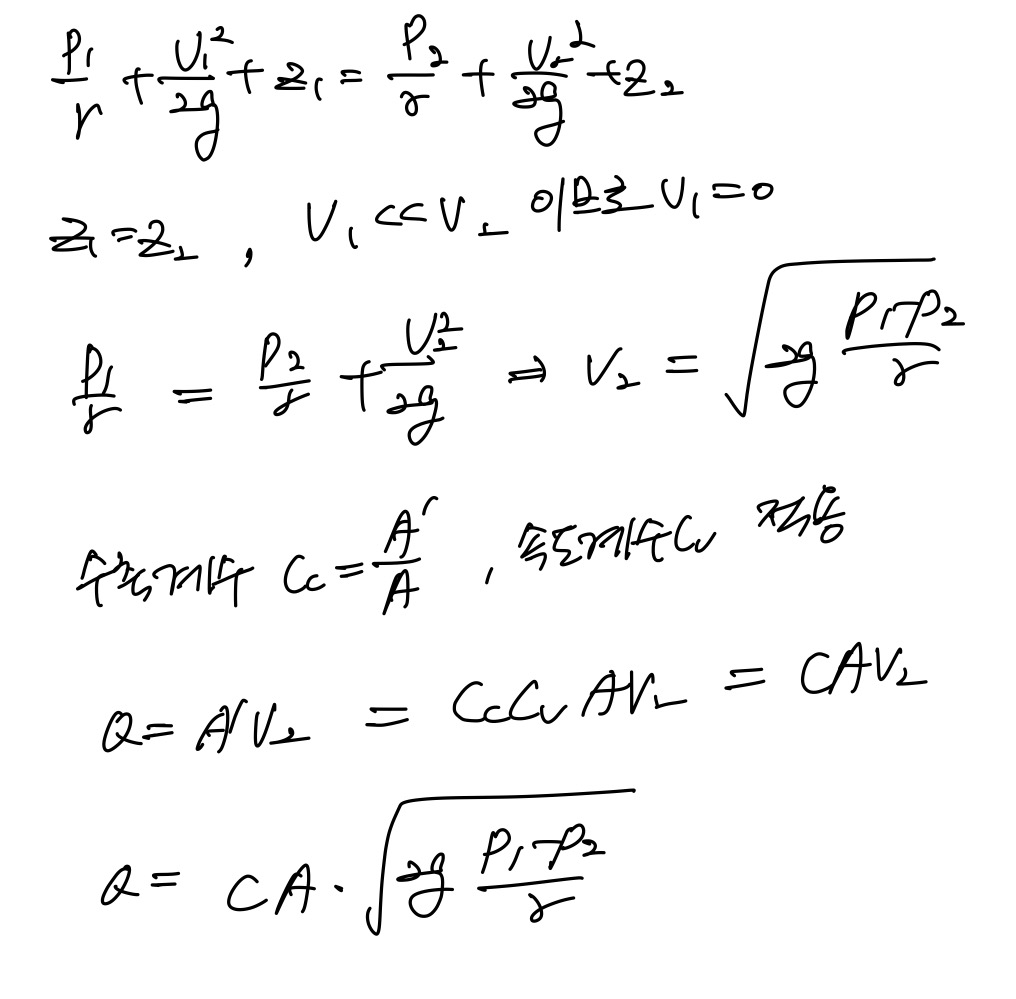 P₁/γ + V₁²/2g + z₁ = P₂/γ + V₂²/2g + z₂
z₁ = z₂ , V₁ << V₂ 이므로 V₁ = 0
P₁/γ = P₂/γ + V₂²/2g ⇒ V₂ = √(2g (P₁-P₂)/γ)
수축계수 Cc = A'/A , 속도계수 Cv 적용
Q = A'V₂ = CcCvAV₂ = CAV₂
Q = CA · √(2g (P₁-P₂)/γ)